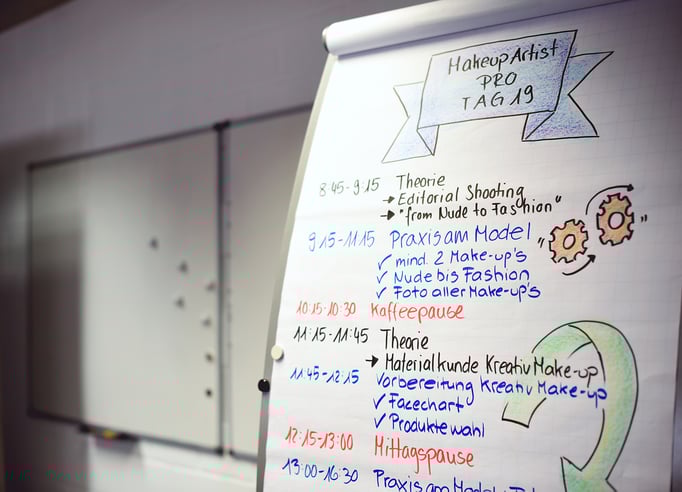 MakeupArtist
PRO
TAG 19
8:45-9:15 Theorie
→ Editorial Shooting
→ "from Nude to Fashion"
9:15-11:15 Praxis am Model
✓ mind. 2 Make-up's
✓ Nude bis Fashion
✓ Foto aller Make-up's
10:15-10:30 Kaffeepause
11:15-11:45 Theorie
→ Materialkunde Kreativ Make-up
11:45-12:15 Vorbereitung Kreativ Make-up
✓ Facechart
✓ Produktewahl
12:15-13:00 Mittagspause
13:00-16:30 Praxis am Model